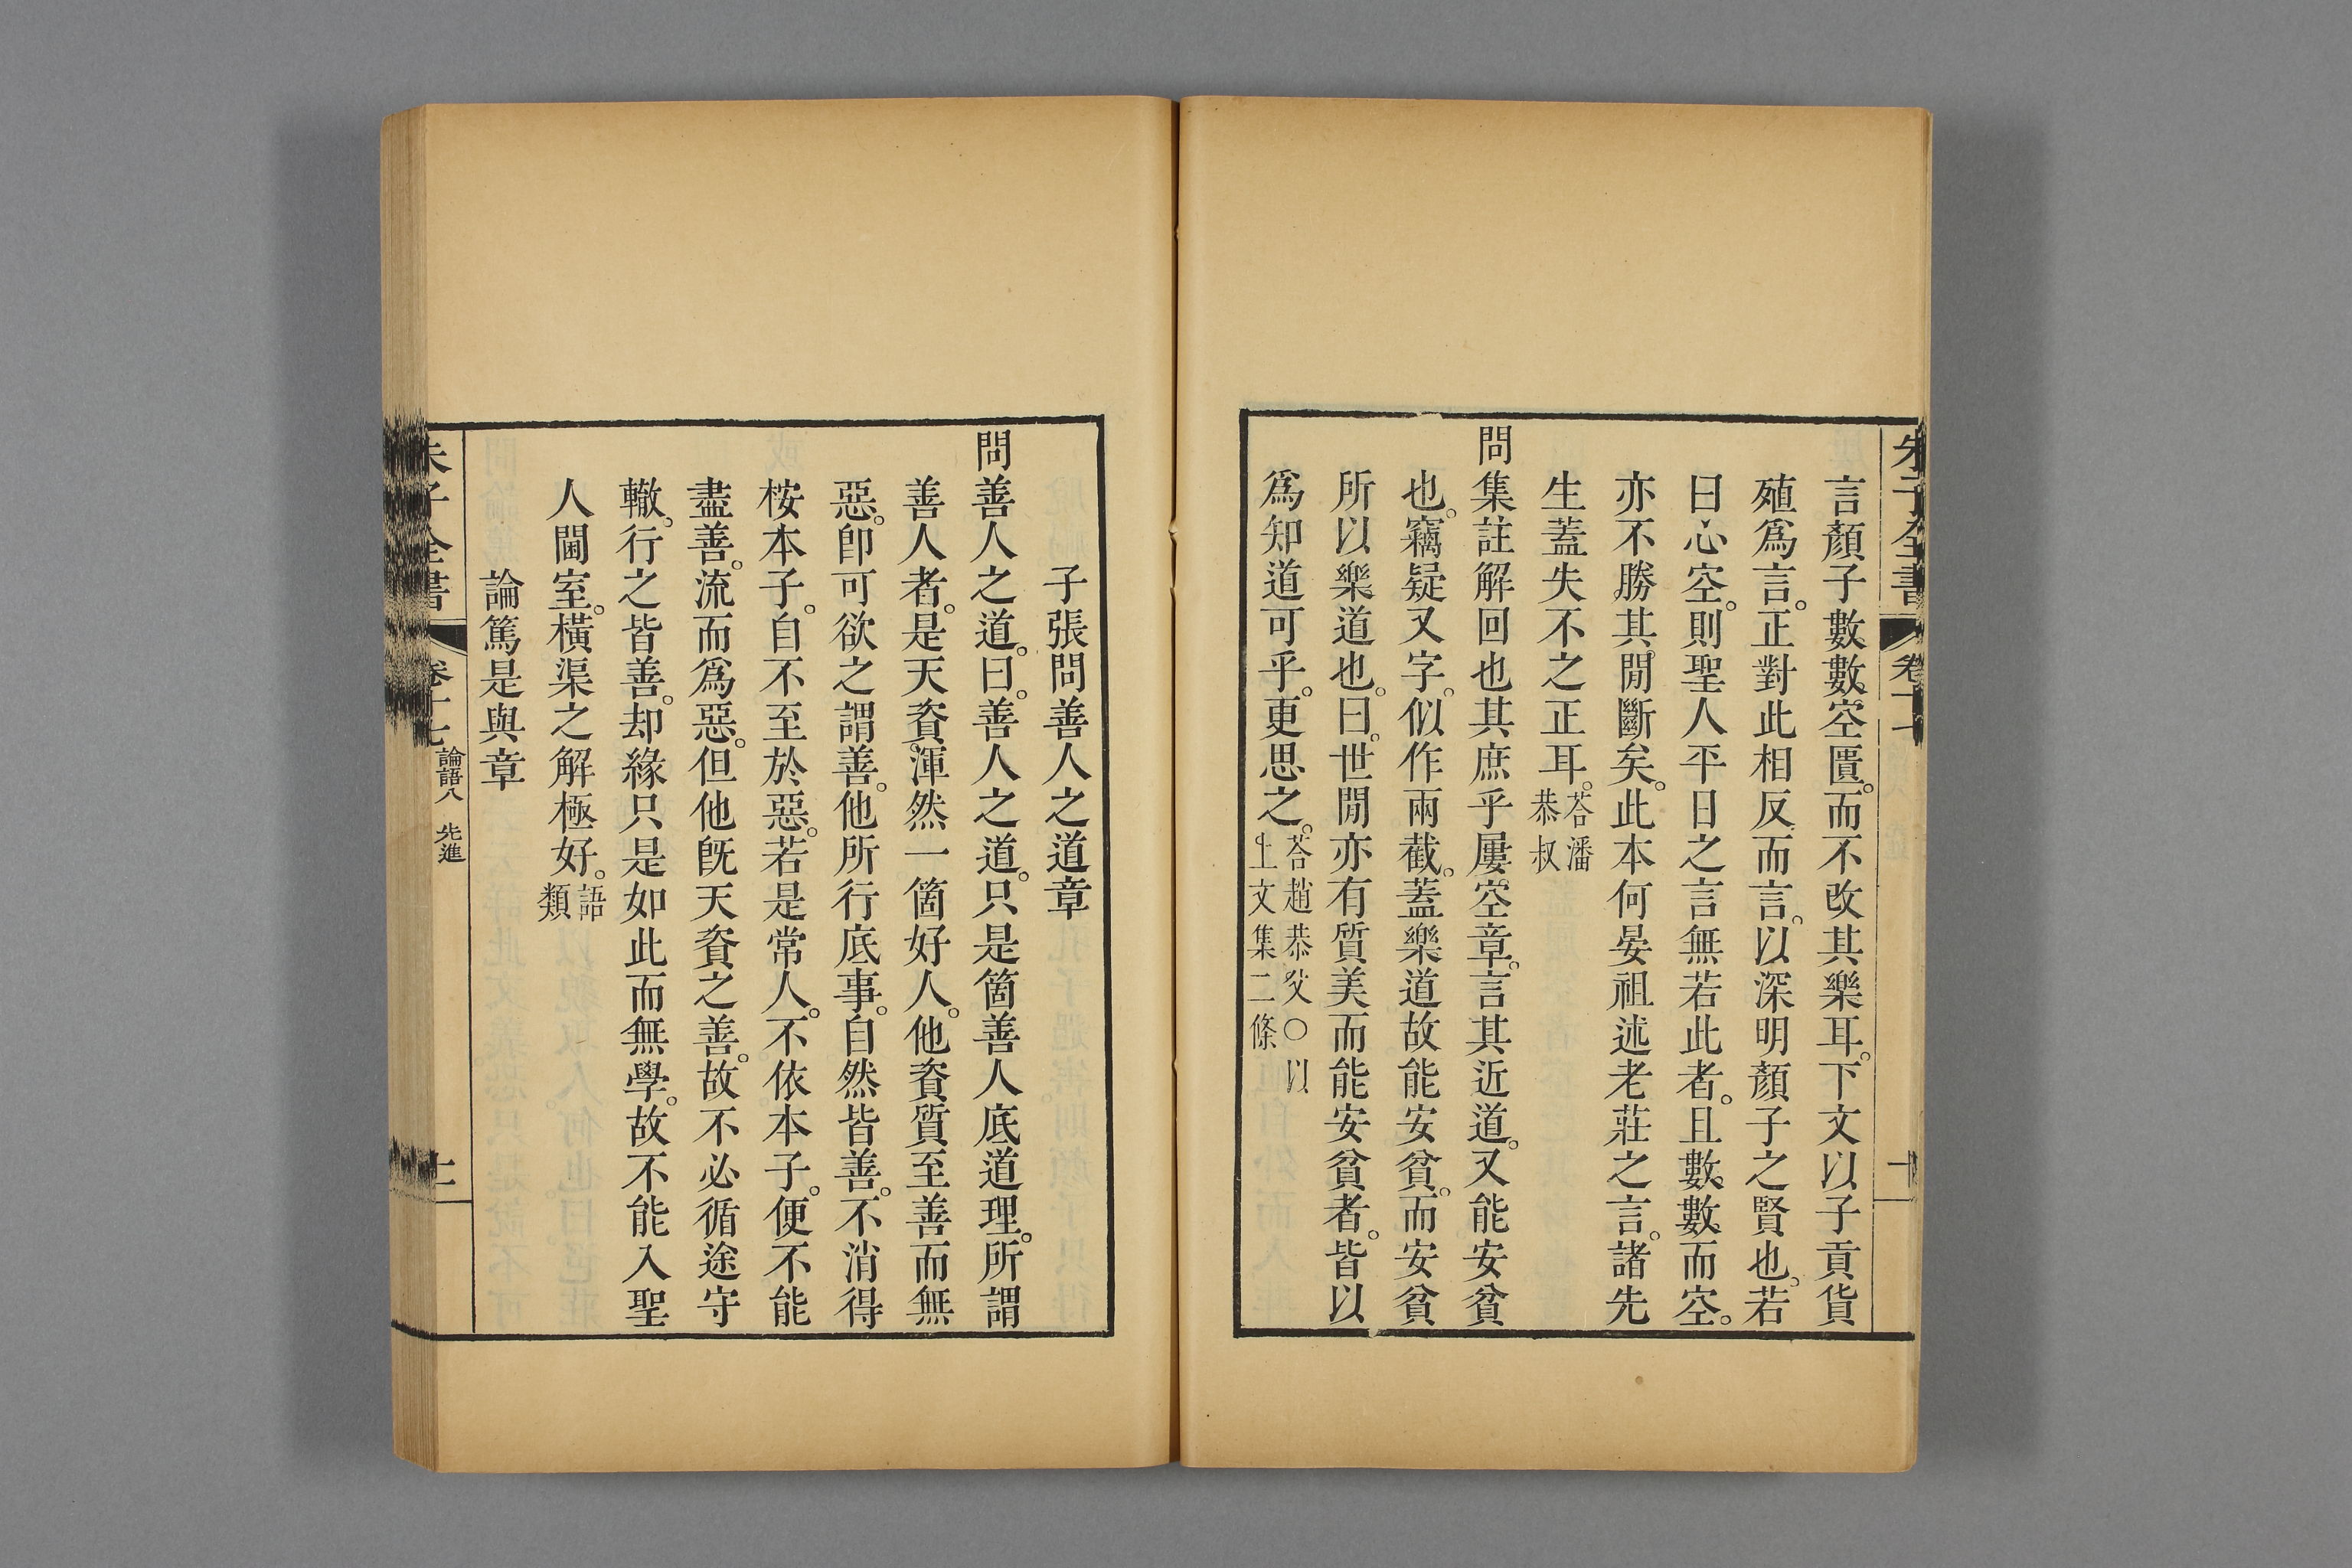 朱子全書 卷十七
言顏子數數空匱。而不改其樂耳。下文以子貢貨
殖爲言。正對此相反而言。以深明顏子之賢也。若
曰心空。則聖人平日之言無若此者。且數數而空。
亦不勝其閒斷矣。此本何晏祖述老莊之言。諸先
生蓋失不之正耳。荅潘恭叔
問集註解回也其庶乎屢空章。言其近道。又能安貧
也。竊疑又字。似作兩截。蓋樂道故能安貧。而安貧
所以樂道也。曰。世閒亦有質美而能安貧者。皆以
爲知道可乎。更思之。荅趙恭父〇以上文集二條
子張問善人之道章
問善人之道。曰。善人之道。只是箇善人底道理。所謂
善人者。是天資渾然一箇好人。他資質至善而無
惡。卽可欲之謂善。他所行底事。自然皆善。不消得
桉本子。自不至於惡。若是常人。不依本子。便不能
盡善。流而爲惡。但他旣天資之善。故不必循途守
轍。行之皆善。却緣只是如此而無學。故不能入聖
人閫室。橫渠之解極好。語類
論篤是與章
朱子全書 卷十七 論語八 先進 十一